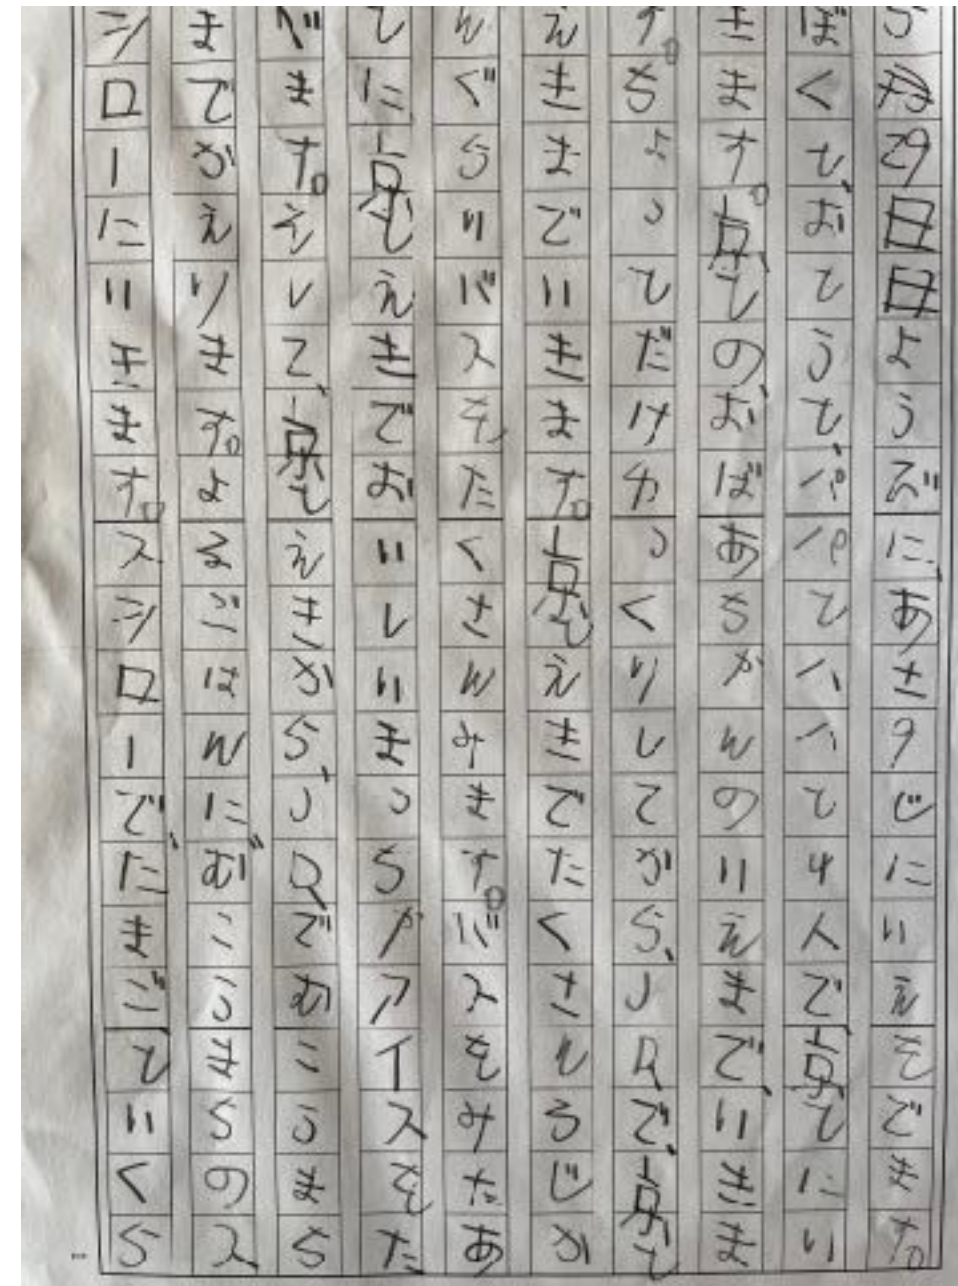 29日日ようびに、あさ9じにいえをでます。
ぼくと、おとうと、パパとハハと4人で、京とにい
きます。京との、おばあちゃんのいえまで、いきま
す。ちょっとだけゆっくりしてから、JRで、京と
えきまでいきます。京とえきでたくさんるじか
んぐらいバスを、たくさんみます。バスをみたあ
とに京とえきでおいしいまっちゃアイスをた
べます。そして、京とえきから、JRでむこうまち
までかえります。よるごはんにむこうきらのス
シローにいきます。スシローで、たまごといくら